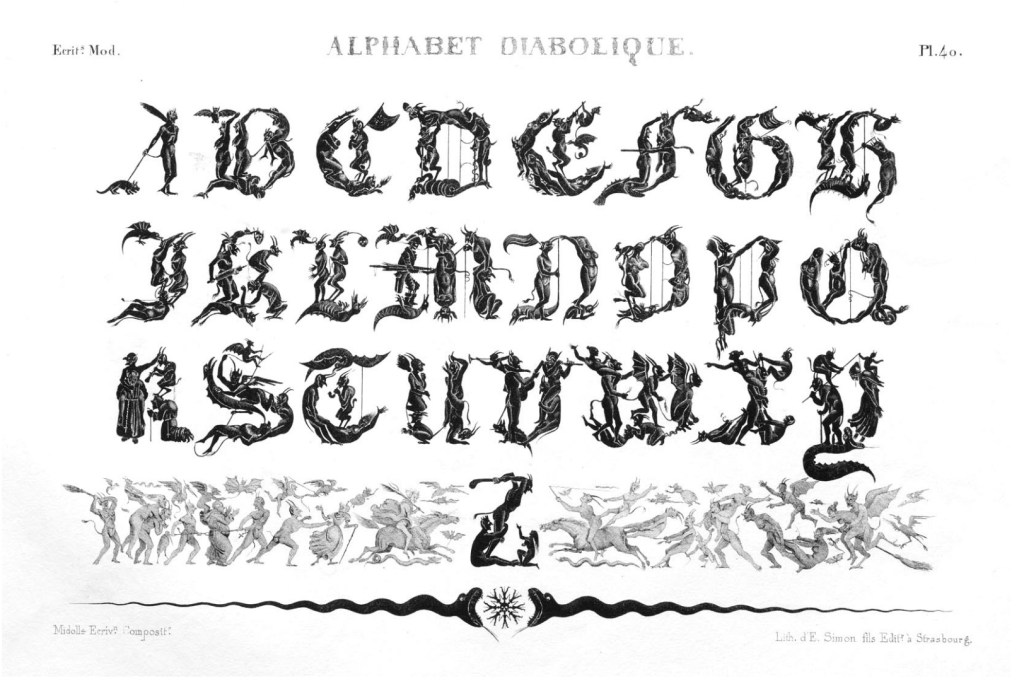 Ecrit.ˢ Mod.
ALPHABET DIABOLIQUE.
Pl.40.
A B C D E F G H
I K L M N O P Q
R S T U V W X Y
Z
Midolle Ecriv.ⁿ Composit.ʳ
Lith. d'E. Simon fils Edit.ʳ à Strasbourg.